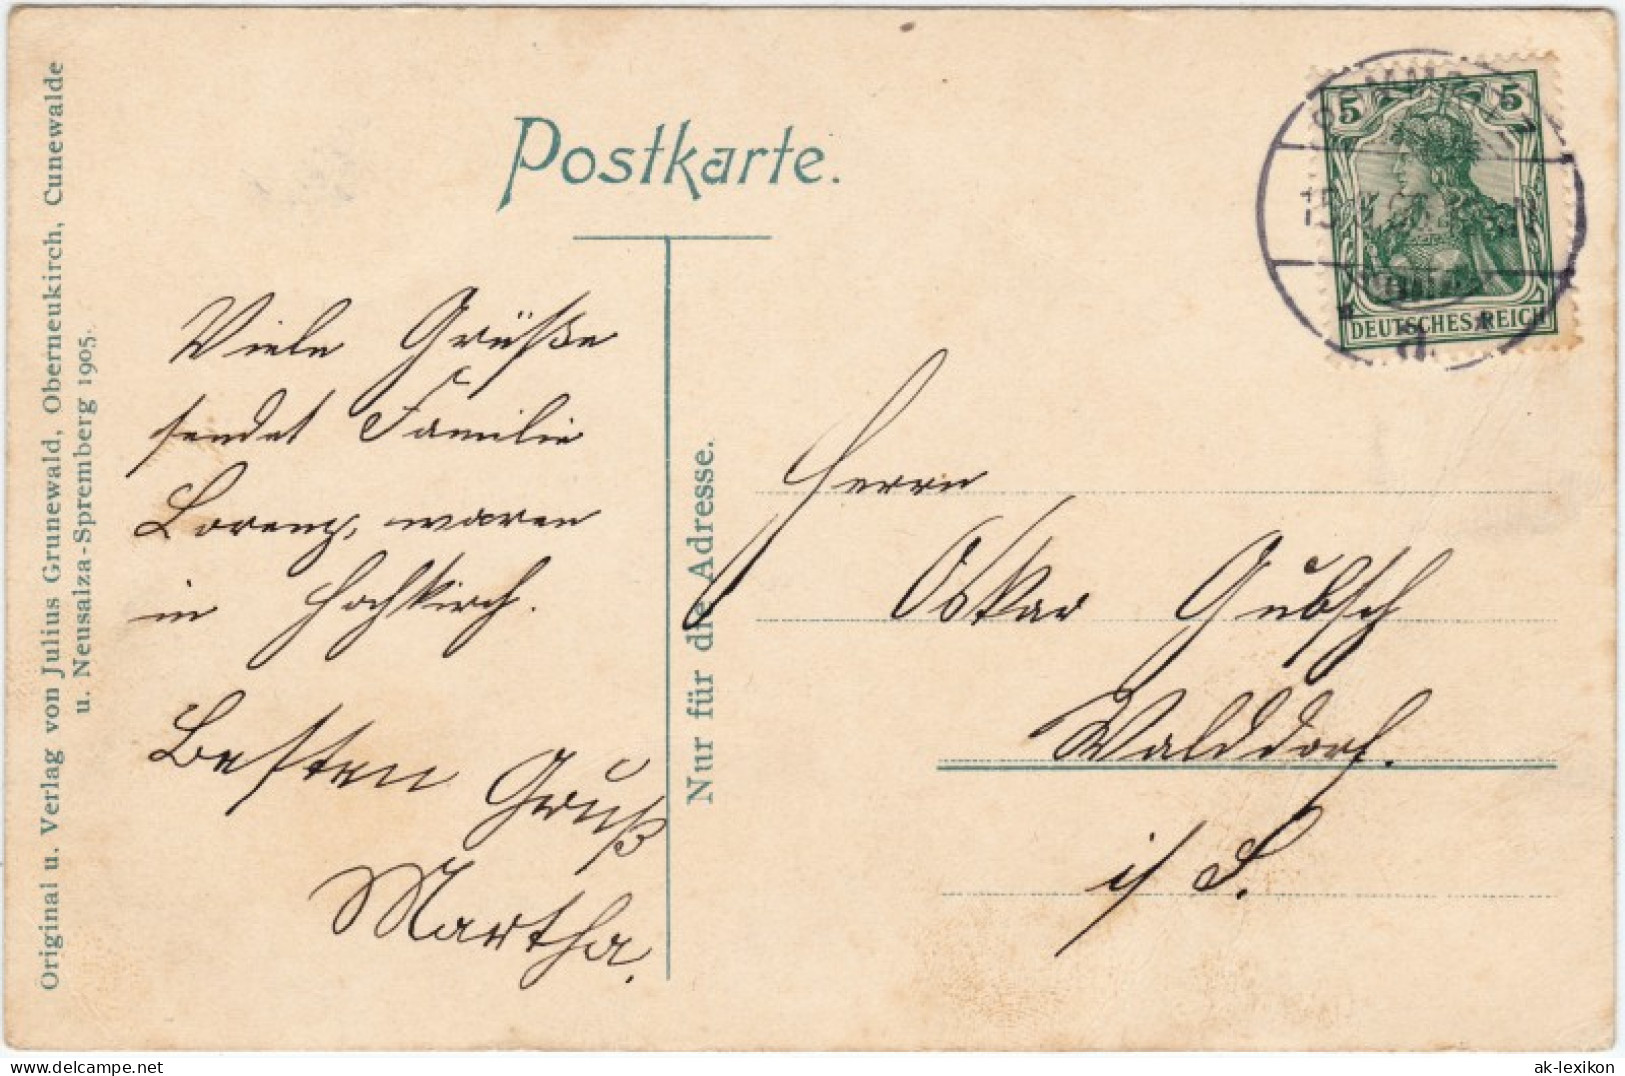 Original u. Verlag von Julius Grunewald, Oberneukirch, Cunewalde
u. Neusalza-Spremberg 1905.
Postkarte.
Viele Grüße
sendet Familie
Lorenz, waren
in Hochkirch.
Besten Gruß
Martha.
Nur für die Adresse.
5 5
DEUTSCHES REICH
Herrn
Oskar Gubsch
Walddorf.
i/ S.
www.delcampe.net
ak-lexikon